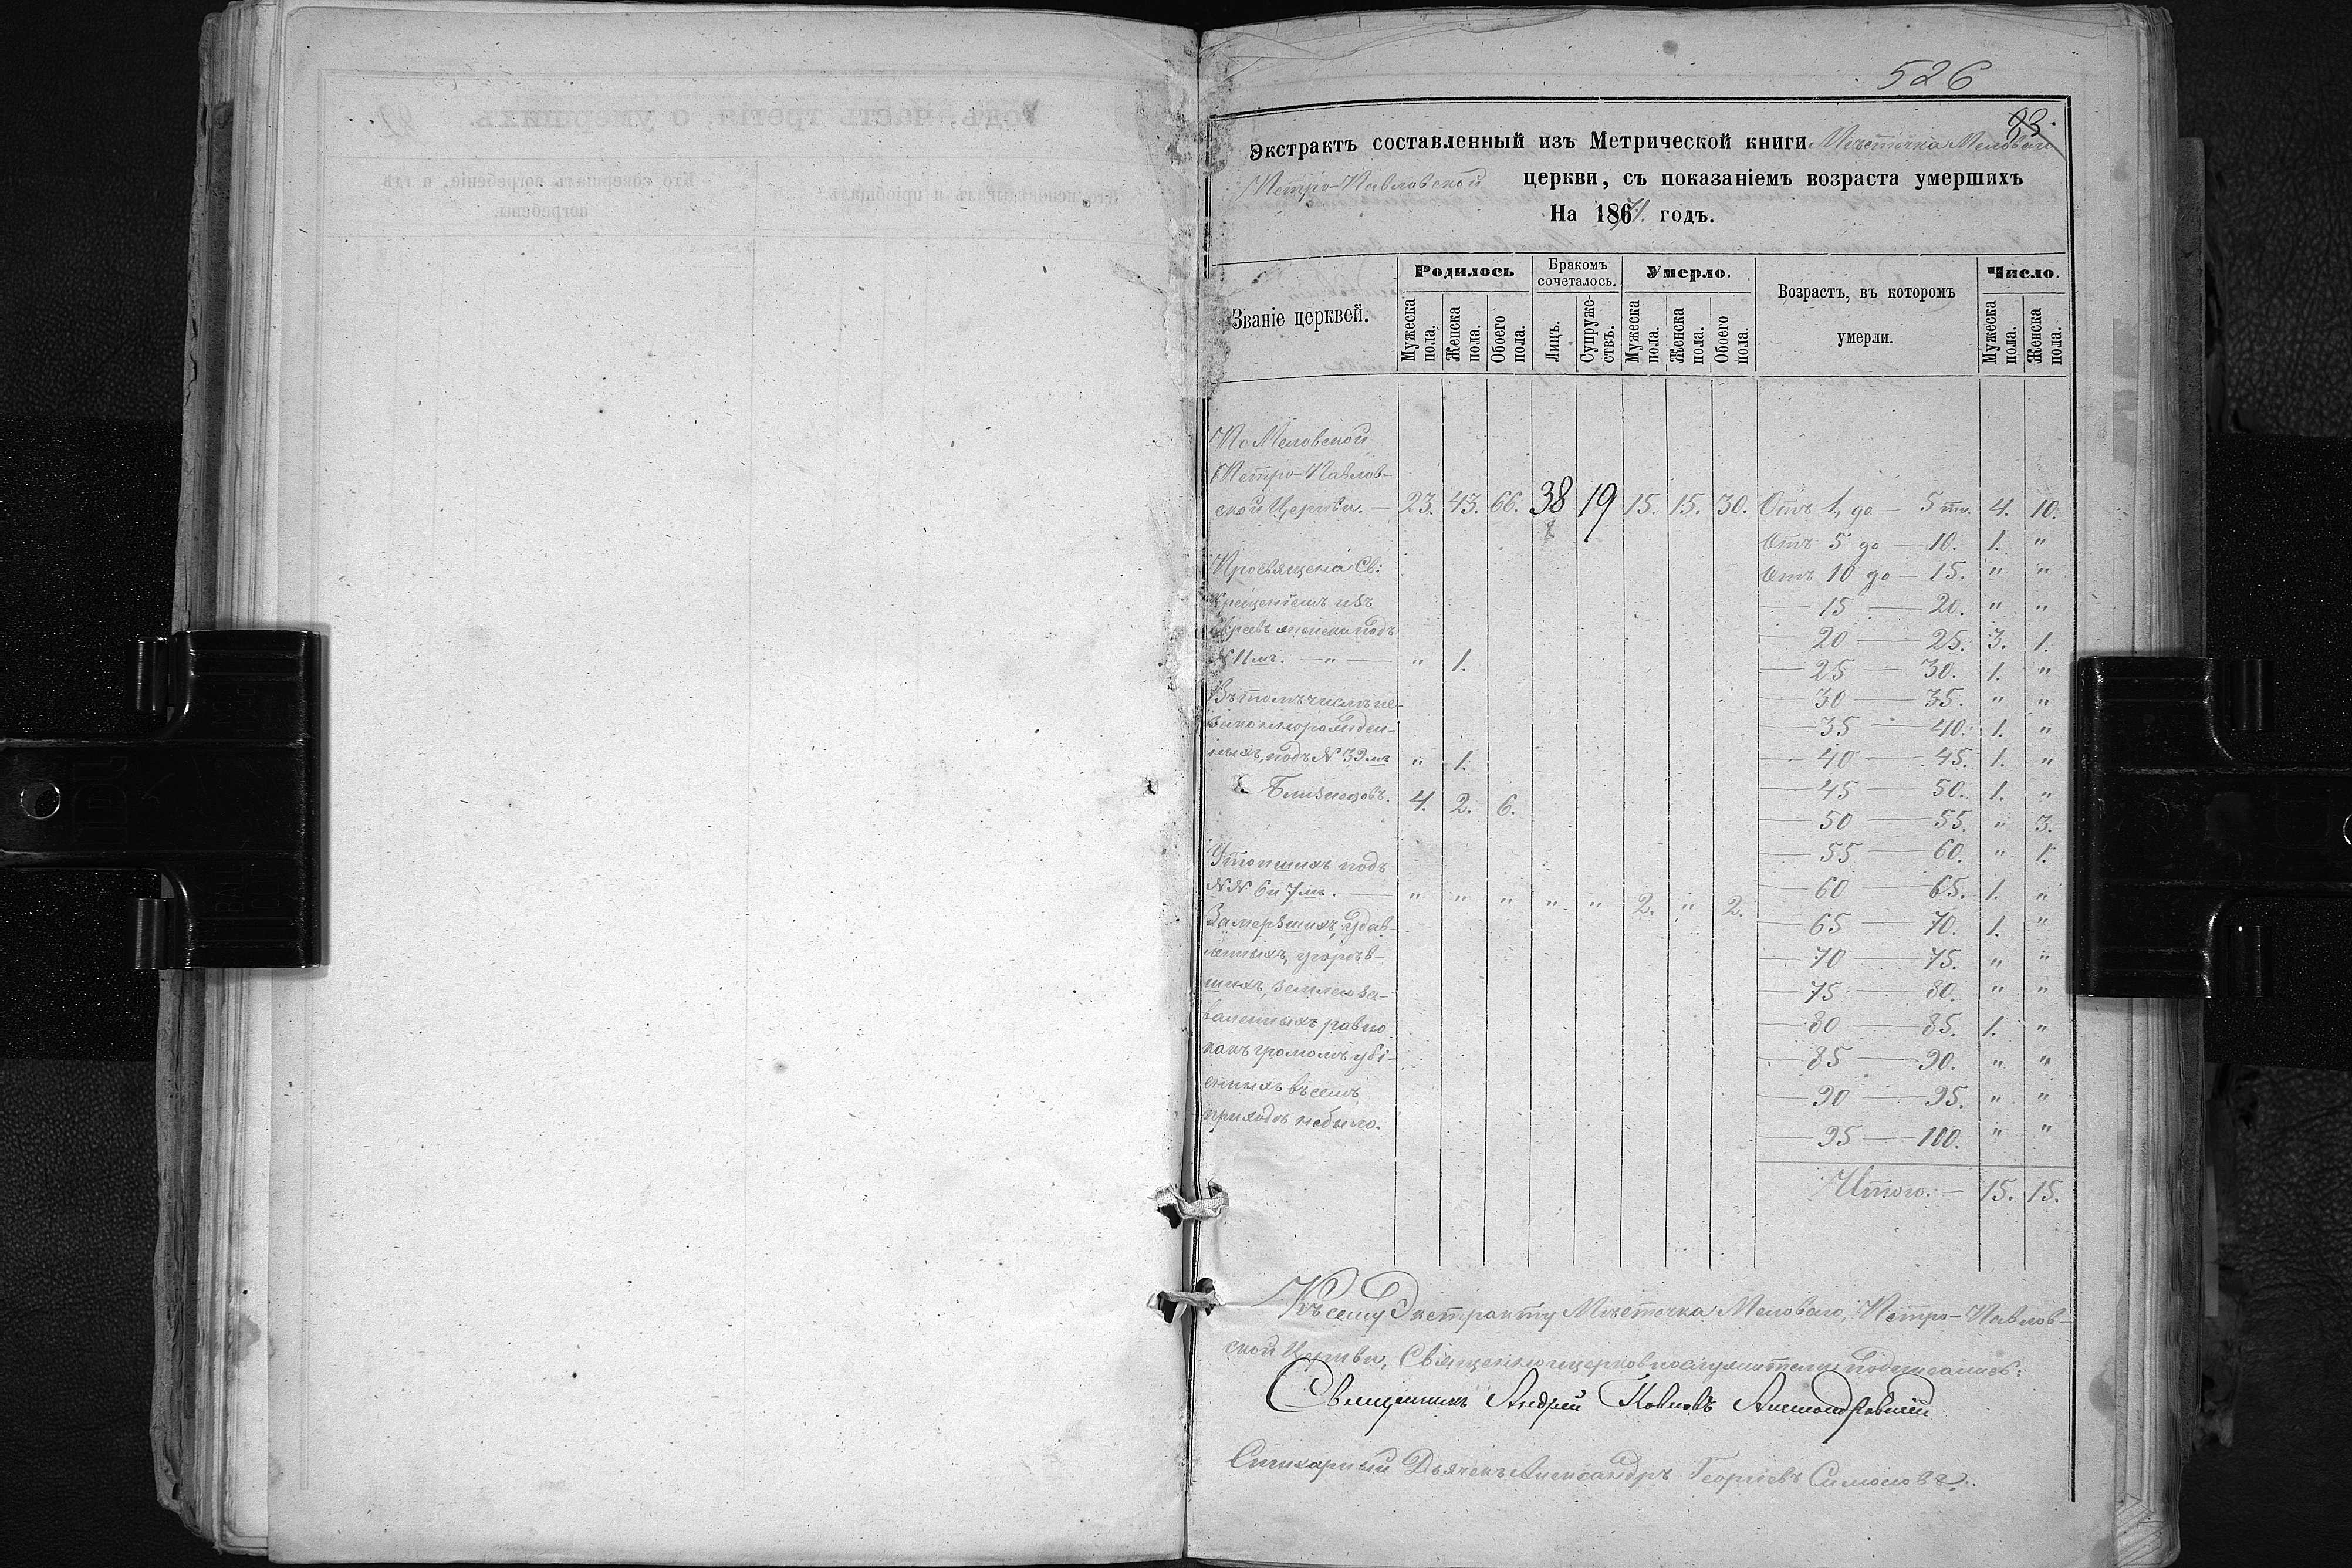 526
93.
Экстрактъ составленный изъ Метрической книги Мѣстечка Меловаго
Петро-Павловской церкви, съ показаніемъ возраста умершихъ
На 1871. годъ.
Званіе церквей.
Родилось
Мужеска пола.
Женска пола.
Обоего пола.
Бракомъ сочеталось.
Лицъ.
Супружествъ.
Умерло.
Мужеска пола.
Женска пола.
Обоего пола.
Возрастъ, въ которомъ
умерли.
Число.
Мужеска пола.
Женска пола.
По Меловской
Петро-Павлов-
ской Церкви. — 23. 43. 66. 38 19 15. 15. 30. Отъ 1, до — 5ти. 4. 10.
Отъ 5 до — 10. 1. "
Просвящена Св: Отъ 10 до — 15. " "
Крещеніемъ изъ — 15 — 20. " "
Евреевъ женска подъ — 20 — 25. 3. 1.
№ 11мъ. — " — " 1. — 25 — 30. 1. "
Въ томъ числѣ не- — 30 — 35. " "
законнорожден- — 35 — 40. 1. "
ныхъ, подъ № 32мъ " 1. — 40 — 45. 1. "
Близнецовъ. 4. 2. 6. — 45 — 50. 1. "
— 50 — 55. " 3.
Утопшихъ подъ — 55 — 60. " 1.
№№ 6 и 7мъ. — " " " " " 2. " 2. — 60 — 65. 1. "
Замерзшихъ, удав- — 65 — 70. 1. "
ленныхъ, угорѣв- — 70 — 75. " "
шихъ, землею за- — 75 — 80. " "
валенныхъ равно — 80 — 85. 1. "
какъ громомъ убі- — 85 — 90. " "
енныхъ въ семъ — 90 — 95. " "
приходѣ небыло. — 95 — 100. " "
Итого. — 15. 15.
Къ сему Экстракту Мѣстечка Меловаго, Петро-Павлов-
ской Церкви, Священноцерковнослужители подписались:
Священникъ Андрей Павловъ
Стихарный Дьячекъ Александръ Георгіевъ Симоновъ.